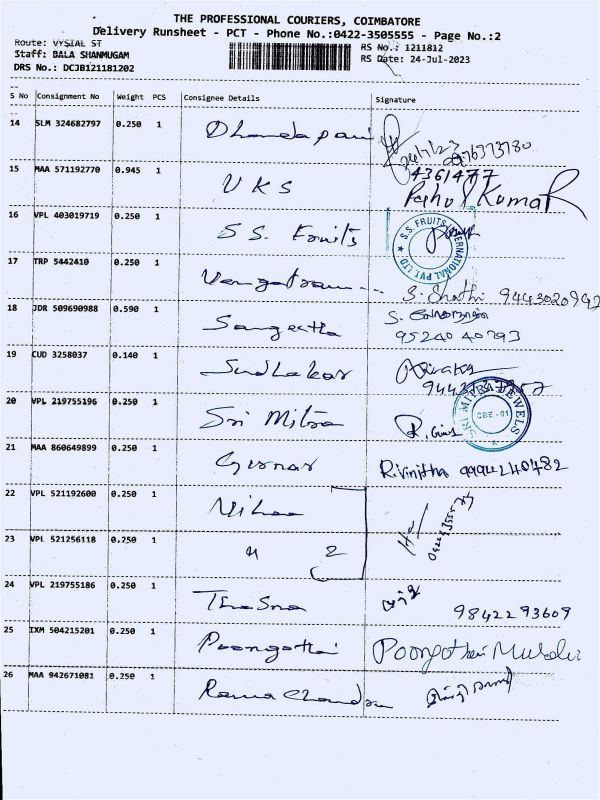 THE PROFESSIONAL COURIERS, COIMBATORE
Delivery Runsheet - PCT - Phone No.:0422-3505555 - Page No.:2
Route: VYSIAL ST
Staff: BALA SHANMUGAM
DRS No.: DCJB121181202
RS No.: 1211812
RS Date: 24-Jul-2023
S No Consignment No Weight PCS Consignee Details Signature
14 SLM 324682797 0.250 1 Dhandapani
15 MAA 571192770 0.945 1 UKS
4361477
Rahul Kumar
16 VPL 403019719 0.250 1 S.S. Fruits
S.S. FRUITS INTERNATIONAL PVT LTD
17 TRP 5442410 0.250 1
18 JDR 509690988 0.590 1 Sangeetha
9524040793
19 CUD 3258037 0.140 1 Sudhakar
20 VPL 219755196 0.250 1 Sri Mitra
SRI MITRA JEWELS
CBE - 01
21 MAA 860649899 0.250 1
Rivinitha 9994240782
22 VPL 521192600 0.250 1
23 VPL 521256118 0.250 1 " 2
24 VPL 219755186 0.250 1
9842293609
25 IXM 504215201 0.250 1 Poongothai Poongothai
26 MAA 942671081 0.250 1 Rama Chandra